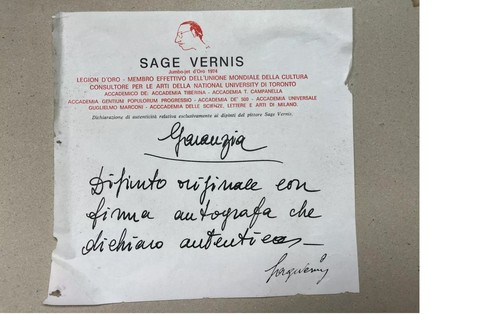 SAGE VERNIS
Jumbo-jet d'Oro 1974
LEGION D'ORO - MEMBRO EFFETTIVO DELL'UNIONE MONDIALE DELLA CULTURA
CONSULTORE PER LE ARTI DELLA NATIONAL UNIVERSITY DI TORONTO
ACCADEMICO DE: ACCADEMIA TIBERINA - ACCADEMIA T. CAMPANELLA
ACCADEMIA GENTIUM POPULORUM PROGRESSIO - ACCADEMIA DE' 500 - ACCADEMIA UNIVERSALE
GUGLIELMO MARCONI - ACCCADEMIA DELLE SCIENZE, LETTERE E ARTI DI MILANO.
Dichiarazione di autenticità relativa esclusivamente ai dipinti del pittore Sage Vernis.
Garanzia
Dipinto originale con
firma autografa che
dichiaro autentica
Sage Vernis